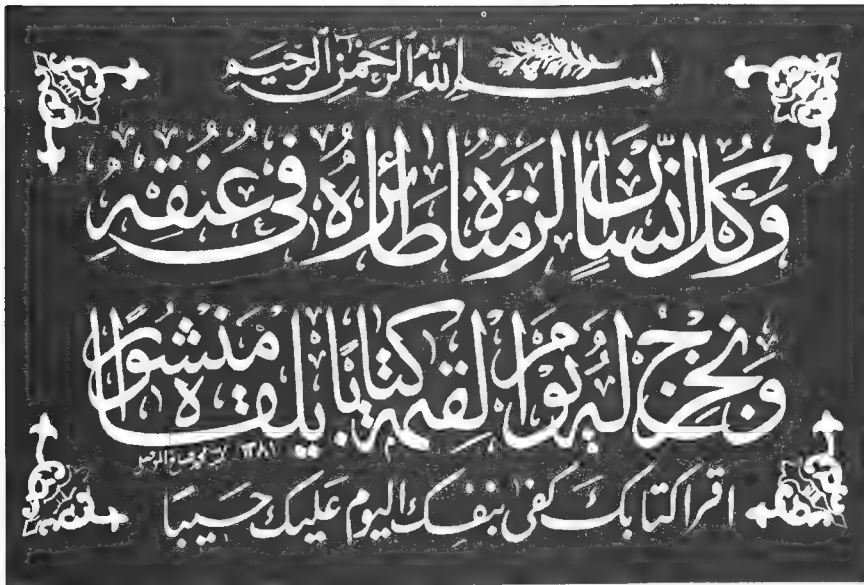 بسم الله الرحمن الرحيم
وَكُلَّ إِنسَانٍ أَلْزَمْنَاهُ طَائِرَهُ فِي عُنُقِهِ
وَنُخْرِجُ لَهُ يَوْمَ الْقِيمَةِ كِتَابًا يَلْقَاهُ مَنْشُورًا
١٣٨١
اقرا كتابك كفى بنفسك اليوم عليك حسيبا